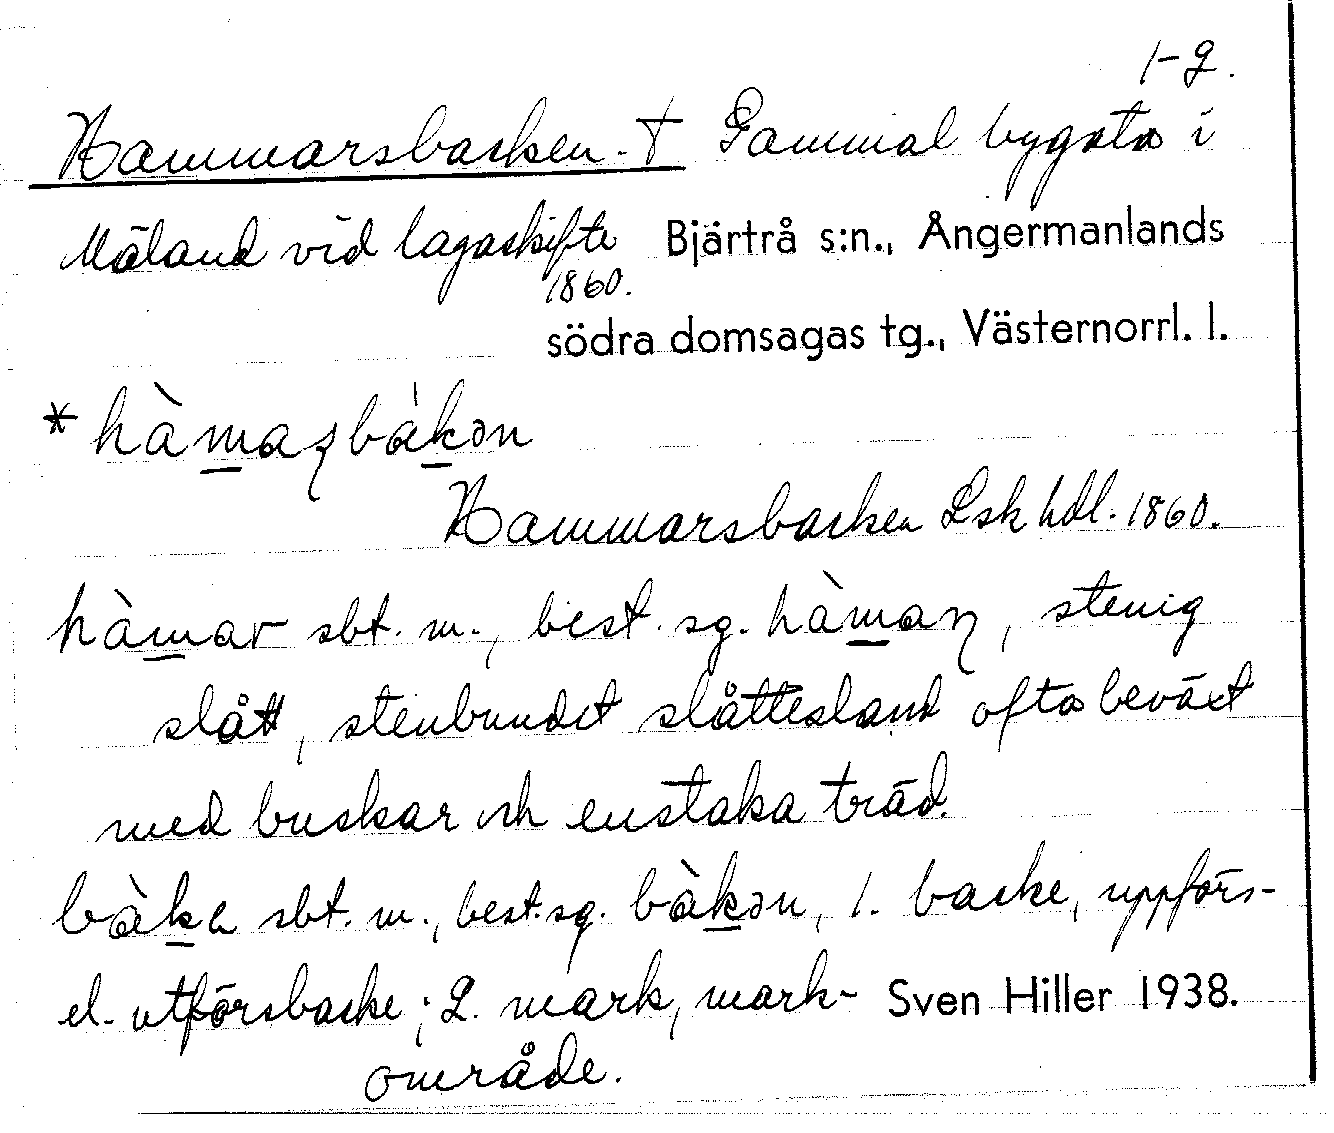 1-2.
Hammarsbacken. † Gammal bygata i
Mäland vid lagaskifte Bjärtrå s:n., Ångermanlands
1860.
södra domsagas tg., Västernorrl. l.
* hàmaʂbàkən
Hammarsbacken Lsk hdl. 1860.
hàmar sbt. m., best. sg. hàmaɳ, stenig
slått, stenbundet slåttesland ofta beväxt
med buskar och enstaka träd.
bàka sbt. m., best. sg. bàkən, 1. backe, uppförs-
el. utförsbacke; 2. mark, mark- Sven Hiller 1938.
område.